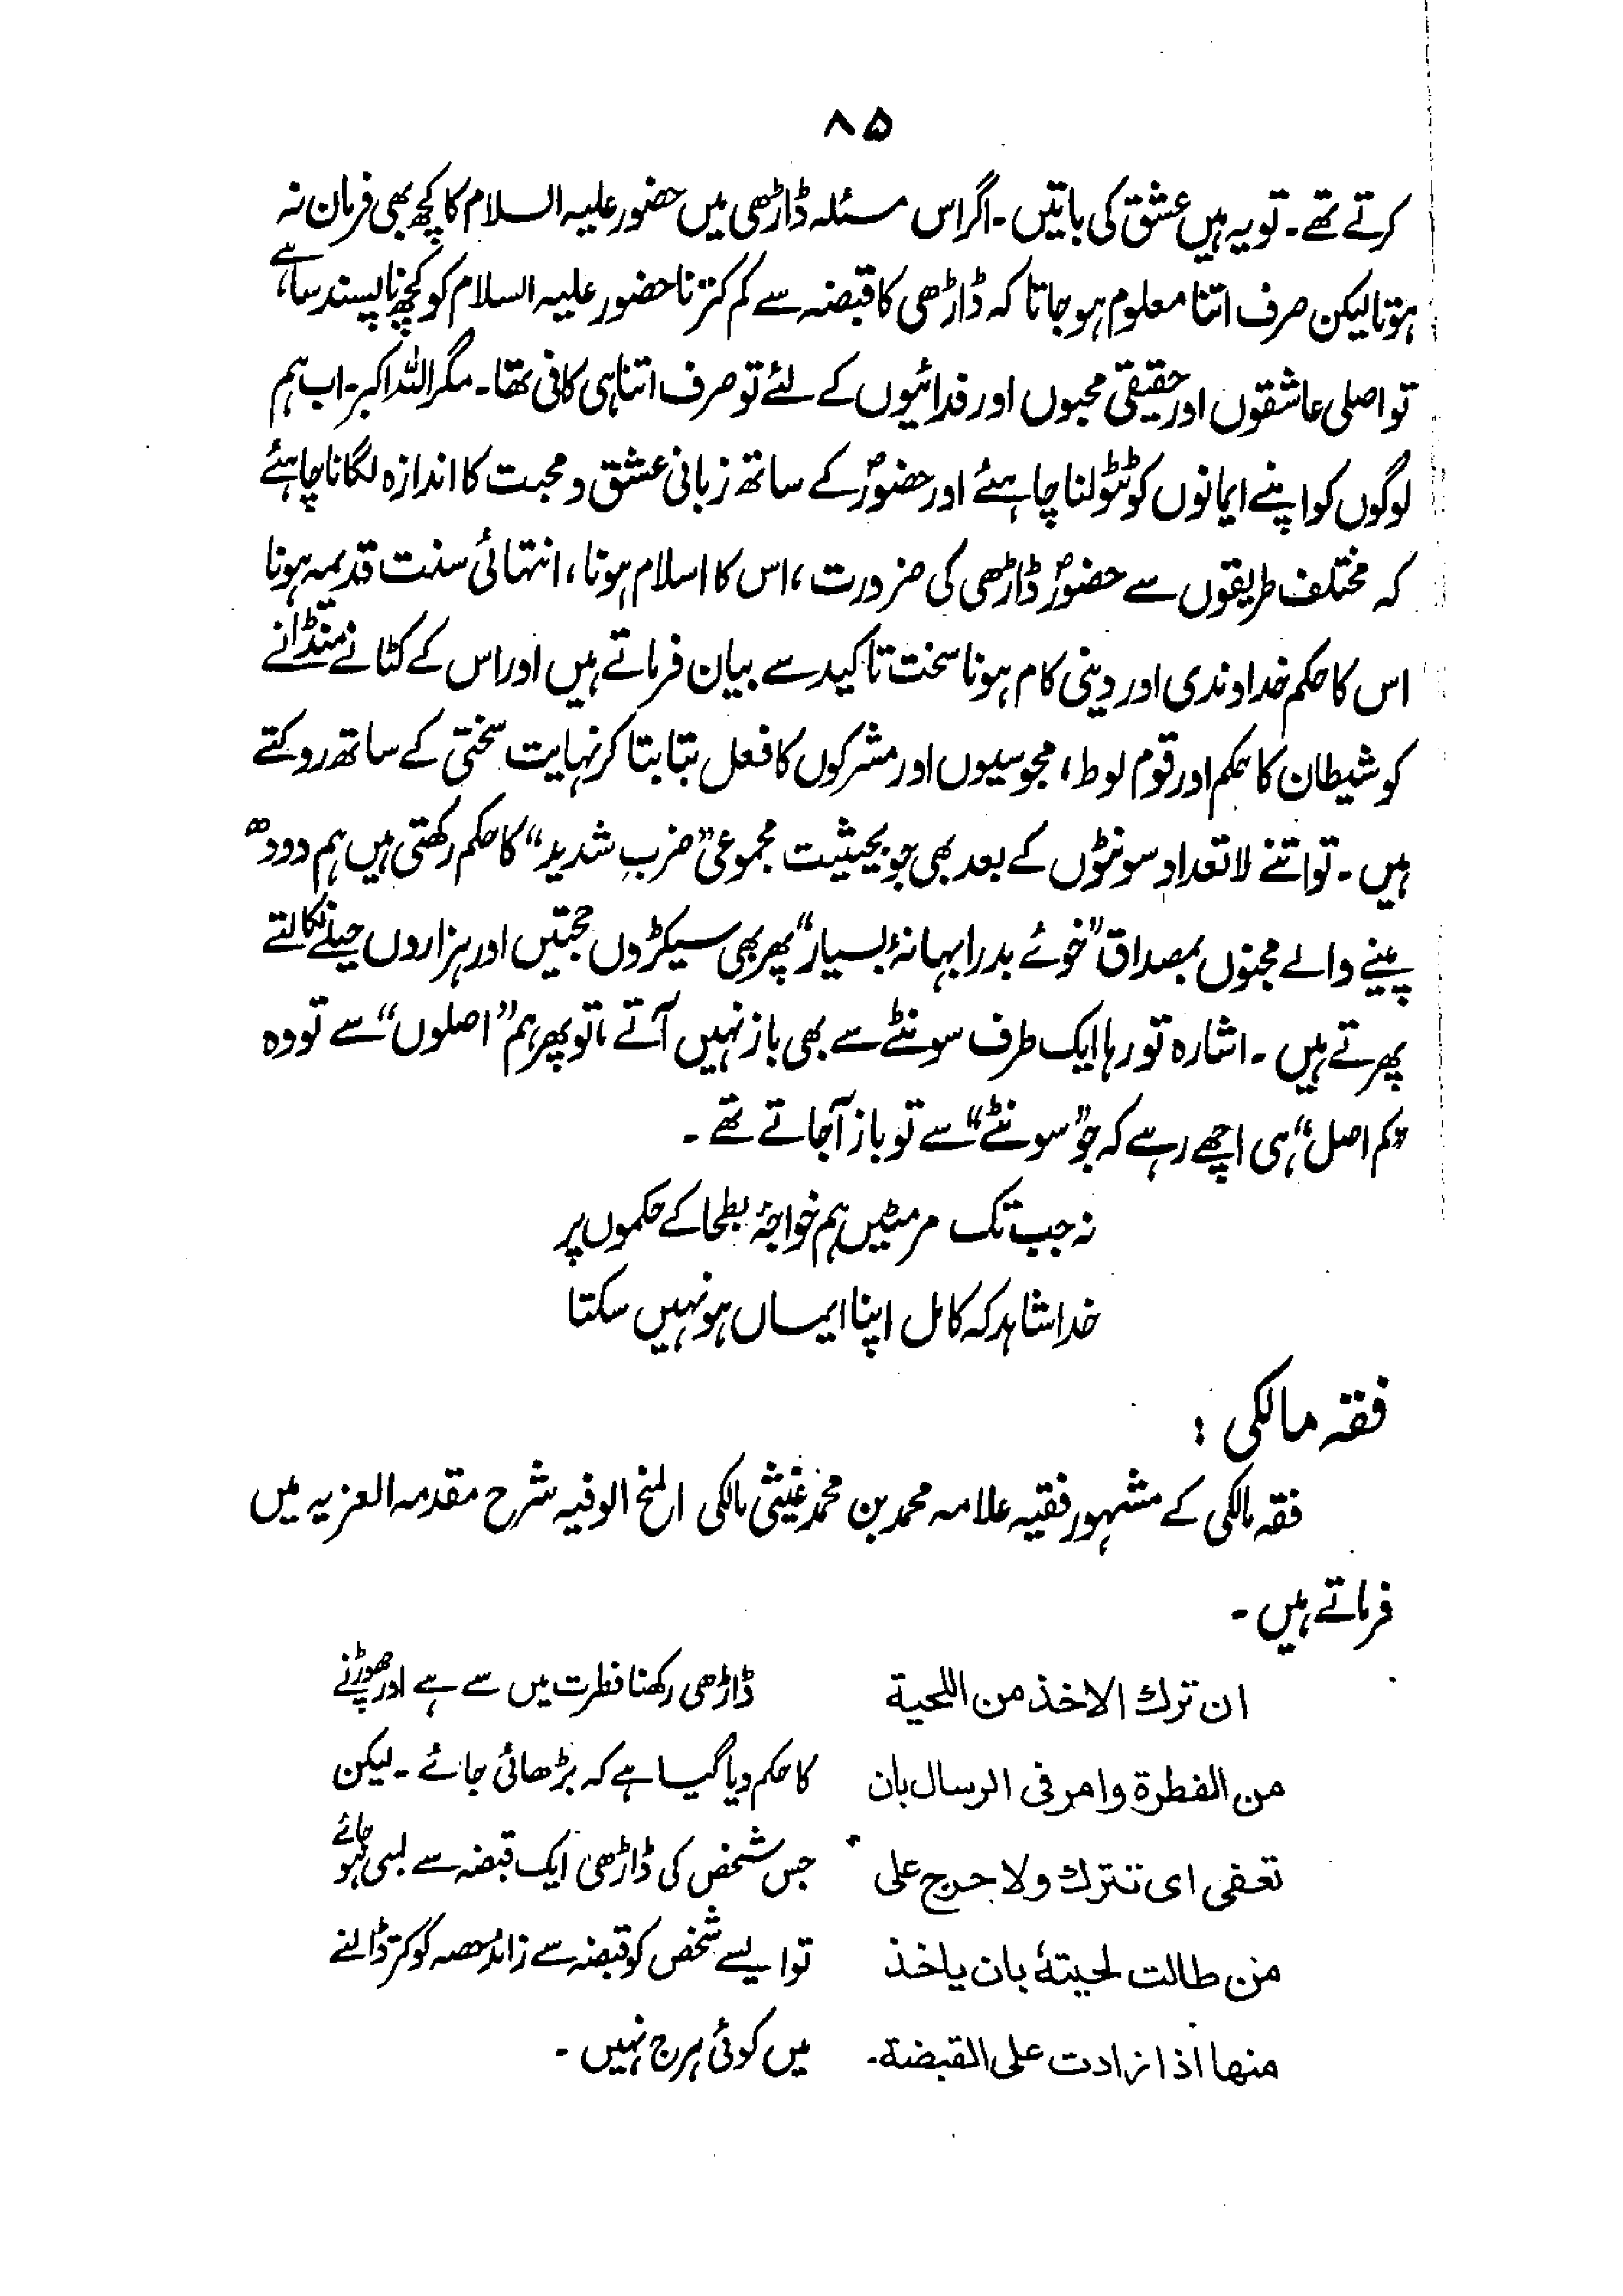 ۸۵
کرتے تھے۔ تو یہ ہیں عشق کی باتیں۔ اگر اس مسئلہ ڈاڑھی میں حضور علیہ السلام کا کچھ بھی فرمان نہ
ہوتا لیکن صرف اتنا معلوم ہو جاتا کہ ڈاڑھی کا قبضہ سے کم کترنا حضور علیہ السلام کو کچھ ناپسند سا ہے،
تو اصلی عاشقوں اور حقیقی محبوں اور فدائیوں کے لئے تو صرف اتنا ہی کافی تھا۔ مگر اللہ اکبر۔ اب ہم
لوگوں کو اپنے ایمانوں کو ٹٹولنا چاہئے اور حضورؐ کے ساتھ زبانی عشق و محبت کا اندازہ لگانا چاہئے
کہ مختلف طریقوں سے حضورؐ ڈاڑھی کی ضرورت، اس کا اسلام ہونا، انتہائی سنت قدیمہ ہونا
اس کا حکم خداوندی اور دینی کام ہونا سخت تاکید سے بیان فرماتے ہیں اور اس کے کٹانے منڈانے
کو شیطان کا حکم اور قوم لوط، مجوسیوں اور مشرکوں کا فعل بتا بتا کر نہایت سختی کے ساتھ روکتے
ہیں۔ تو اتنے لاتعداد سونٹوں کے بعد بھی جو بحیثیت مجموعی ”ضربِ شدید“ کا حکم رکھتی ہیں ہم دودھ
پینے والے مجنوں بمصداق ”خوئے بد را بہانۂ بسیار“ پھر بھی سیکڑوں حجتیں اور ہزاروں حیلے نکالتے
پھرتے ہیں۔ اشارہ تو رہا ایک طرف سونٹے سے بھی باز نہیں آتے، تو پھر ہم ”اصلوں“ سے تو وہ
”کم اصل“ ہی اچھے رہے کہ جو ”سونٹے“ سے تو باز آجاتے تھے۔
نہ جب تک مر مٹیں ہم خواجۂ بطحا کے حکموں پر
خدا شاہد کہ کامل اپنا ایماں ہو نہیں سکتا
فقہ مالکی :
فقہ مالکی کے مشہور فقیہ علامہ محمد بن محمد غیثی مالکی المنح الوفیہ شرح مقدمہ العزیہ میں
فرماتے ہیں۔
ان ترك الاخذ من اللحية
من الفطرة وامر فى الرسال بان
تعفى اى تترك ولا حرج على
من طالت لحيتهٗ بان ياخذ
منها اذا زادت على القبضة۔
ڈاڑھی رکھنا فطرت میں سے ہے اور چھوڑنے
کا حکم دیا گیا ہے کہ بڑھائی جائے۔ لیکن
جس شخص کی ڈاڑھی ایک قبضہ سے لمبی ہو جائے
تو ایسے شخص کو قبضہ سے زائد حصہ کو کتر ڈالنے
میں کوئی ہرج نہیں۔